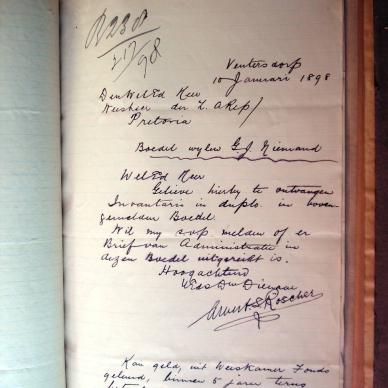 R238
17/98
Ventersdorp
10 Januari 1898
Den Wel Ed Heer
Weesheer der Z. A Rep /
Pretoria
Boedel wylen G J Niemand
Wel Ed Heer
Gelieve hierby te ontvangen
Inventaris in duplo. in boven
gemelden Boedel
Wil my svp melden of er
Brief van Administratie in
dezen Boedel uitgereikt is.
Hoogachtend
UEds Dw Dienaar
Roscher
Kan geld, uit Weeskamer Fonds
geleend, binnen 5 jaren terug